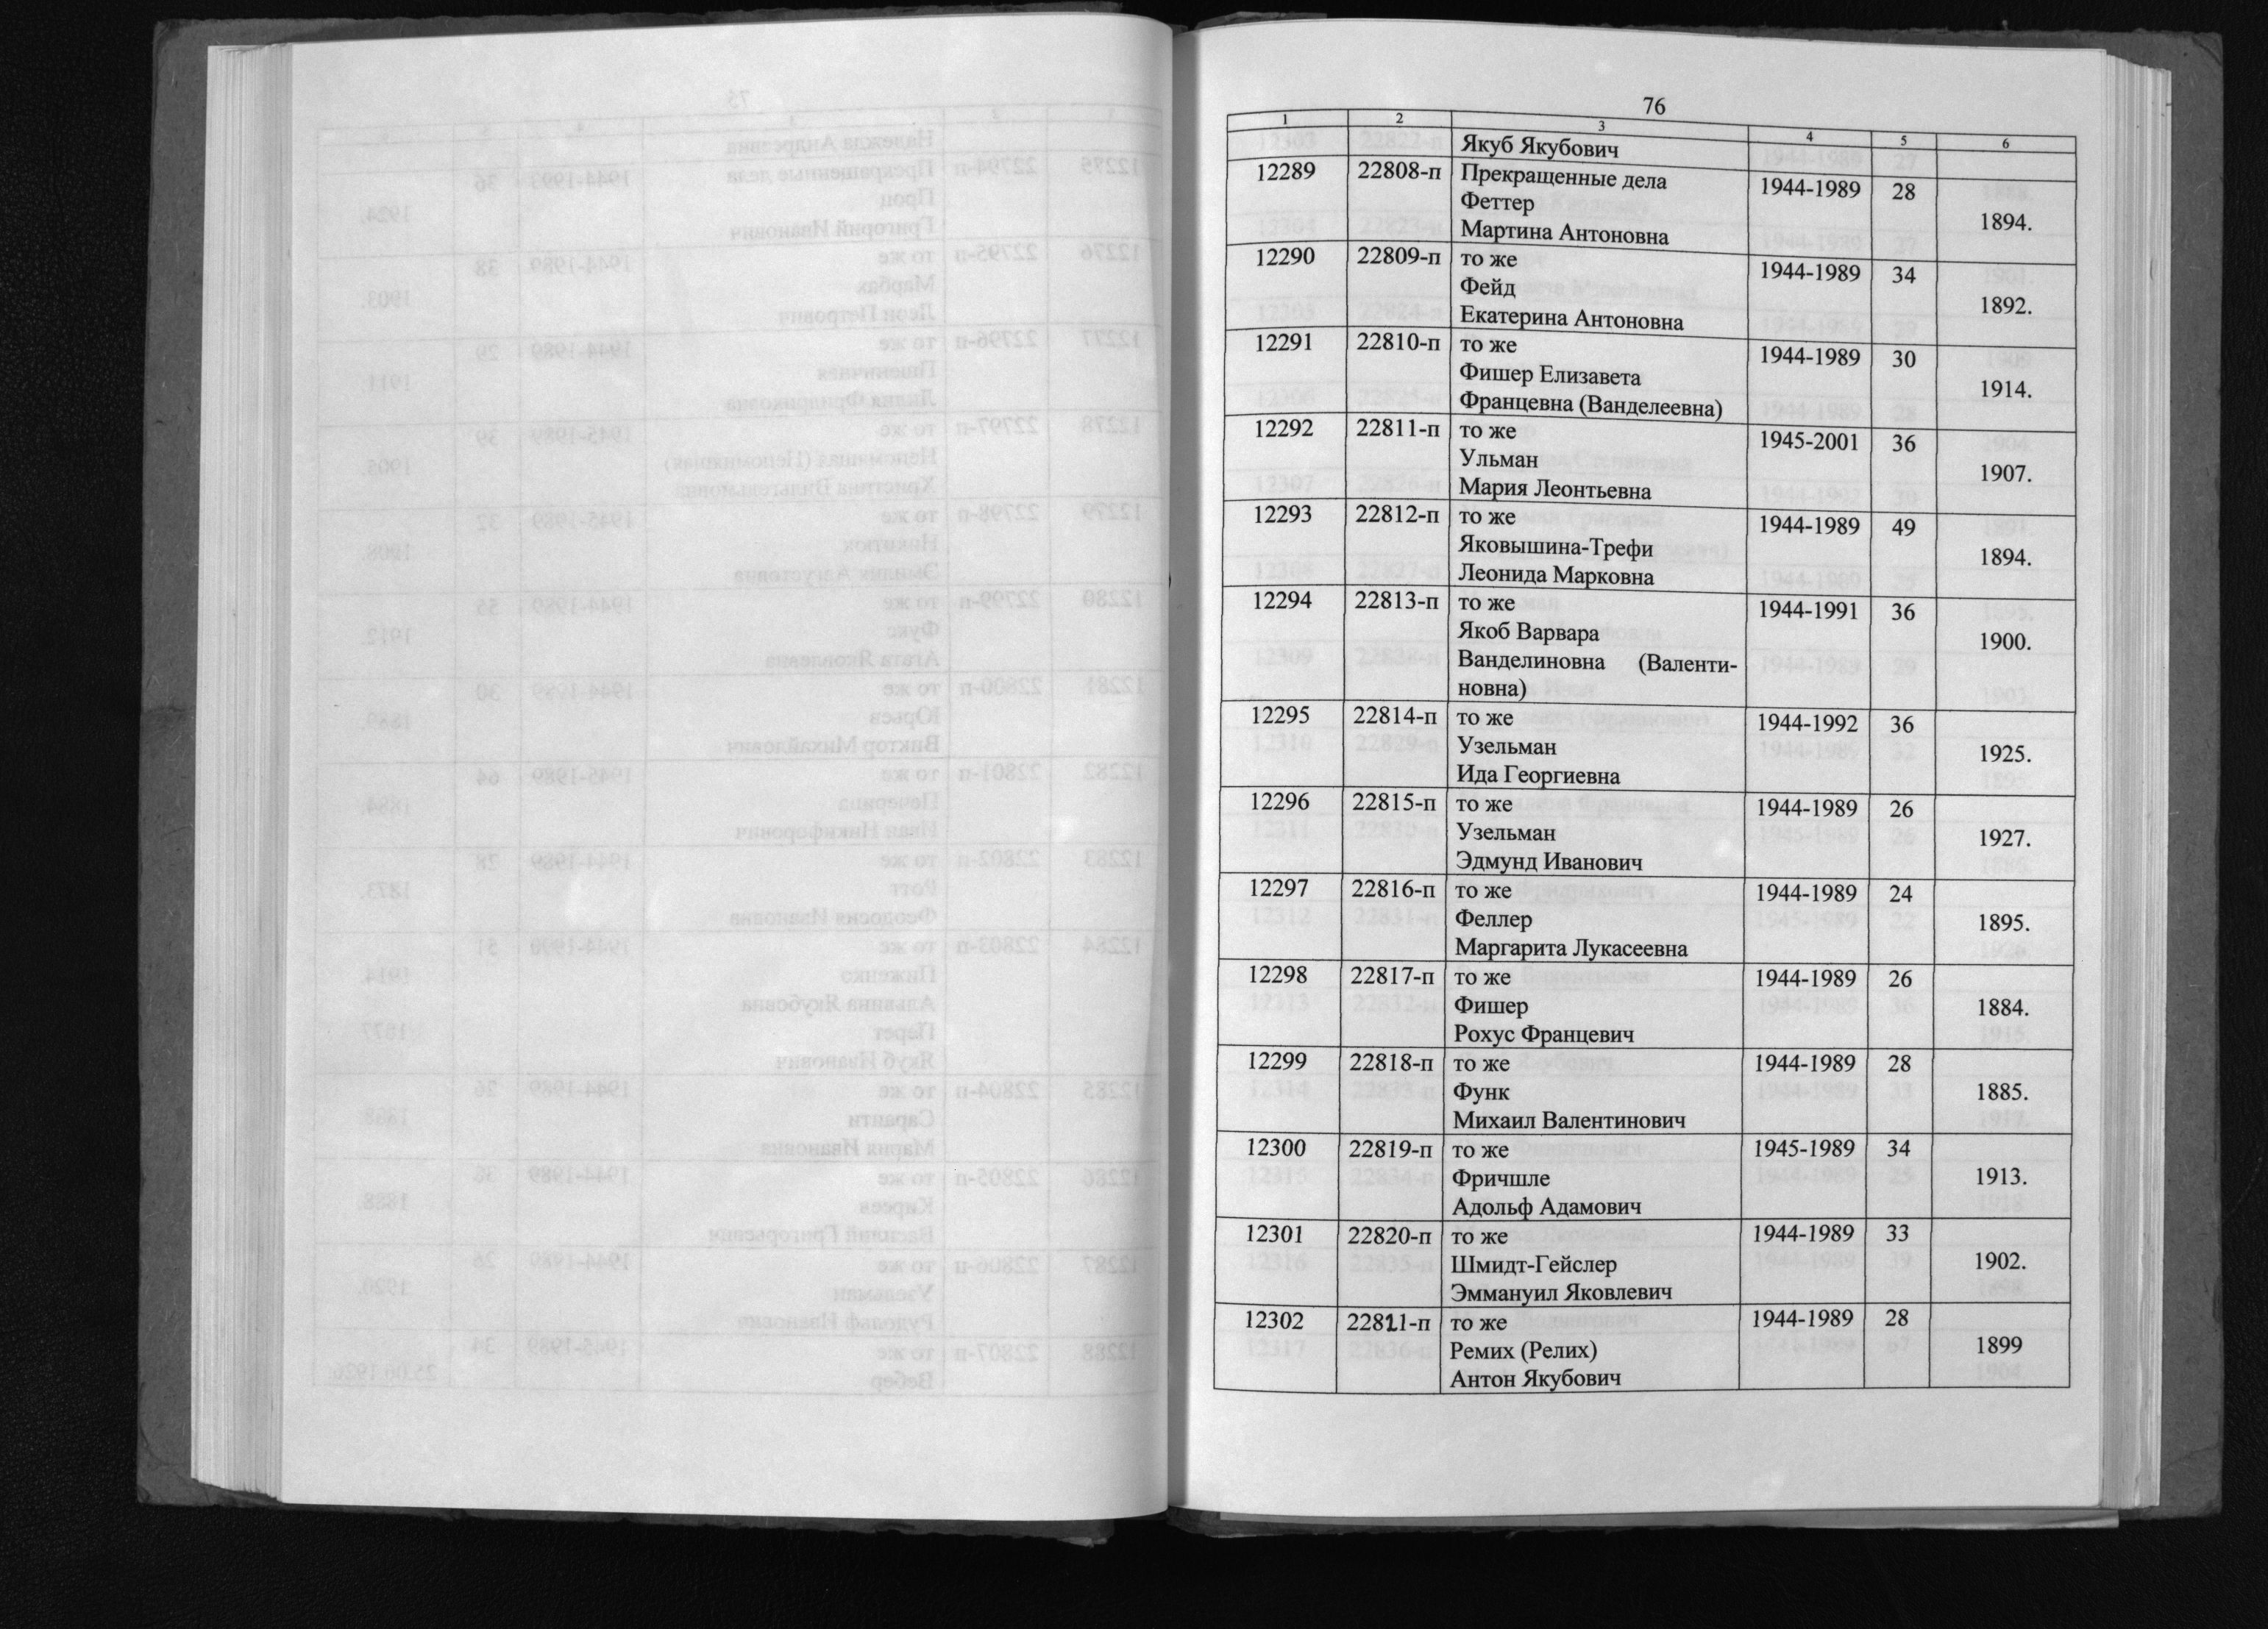 76
1 2 3 4 5 6
Якуб Якубович
12289 22808-п Прекращенные дела 1944-1989 28
Феттер 1894.
Мартина Антоновна
12290 22809-п то же 1944-1989 34
Фейд 1892.
Екатерина Антоновна
12291 22810-п то же 1944-1989 30
Фишер Елизавета 1914.
Францевна (Ванделеевна)
12292 22811-п то же 1945-2001 36
Ульман 1907.
Мария Леонтьевна
12293 22812-п то же 1944-1989 49
Яковышина-Трефи 1894.
Леонида Марковна
12294 22813-п то же 1944-1991 36
Якоб Варвара 1900.
Ванделиновна (Валенти-
новна)
12295 22814-п то же 1944-1992 36
Узельман 1925.
Ида Георгиевна
12296 22815-п то же 1944-1989 26
Узельман 1927.
Эдмунд Иванович
12297 22816-п то же 1944-1989 24
Феллер 1895.
Маргарита Лукасеевна
12298 22817-п то же 1944-1989 26
Фишер 1884.
Рохус Францевич
12299 22818-п то же 1944-1989 28
Функ 1885.
Михаил Валентинович
12300 22819-п то же 1945-1989 34
Фричшле 1913.
Адольф Адамович
12301 22820-п то же 1944-1989 33
Шмидт-Гейслер 1902.
Эммануил Яковлевич
12302 22821-п то же 1944-1989 28
Ремих (Релих) 1899
Антон Якубович